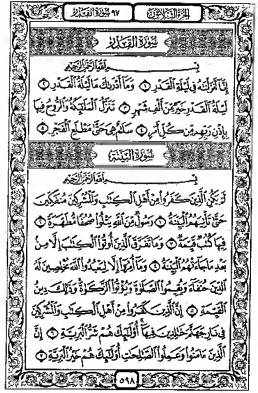 الجزء الثلاثون ٩٧ سورة القدر
سُورَةُ القَدْرِ
بِسْمِ اللَّهِ الرَّحْمَٰنِ الرَّحِيمِ
إِنَّا أَنزَلْنَٰهُ فِي لَيْلَةِ الْقَدْرِ ١ وَمَا أَدْرَىٰكَ مَا لَيْلَةُ الْقَدْرِ ٢
لَيْلَةُ الْقَدْرِ خَيْرٌ مِّنْ أَلْفِ شَهْرٍ ٣ تَنَزَّلُ الْمَلَٰئِكَةُ وَالرُّوحُ فِيهَا
بِإِذْنِ رَبِّهِم مِّن كُلِّ أَمْرٍ ٤ سَلَٰمٌ هِيَ حَتَّىٰ مَطْلَعِ الْفَجْرِ ٥
سُورَةُ البَيِّنَةِ
بِسْمِ اللَّهِ الرَّحْمَٰنِ الرَّحِيمِ
لَمْ يَكُنِ الَّذِينَ كَفَرُوا مِنْ أَهْلِ الْكِتَٰبِ وَالْمُشْرِكِينَ مُنفَكِّينَ
حَتَّىٰ تَأْتِيَهُمُ الْبَيِّنَةُ ١ رَسُولٌ مِّنَ اللَّهِ يَتْلُوا صُحُفًا مُّطَهَّرَةً ٢
فِيهَا كُتُبٌ قَيِّمَةٌ ٣ وَمَا تَفَرَّقَ الَّذِينَ أُوتُوا الْكِتَٰبَ إِلَّا مِن
بَعْدِ مَا جَاءَتْهُمُ الْبَيِّنَةُ ٤ وَمَا أُمِرُوا إِلَّا لِيَعْبُدُوا اللَّهَ مُخْلِصِينَ لَهُ
الدِّينَ حُنَفَاءَ وَيُقِيمُوا الصَّلَوٰةَ وَيُؤْتُوا الزَّكَوٰةَ وَذَٰلِكَ دِينُ
الْقَيِّمَةِ ٥ إِنَّ الَّذِينَ كَفَرُوا مِنْ أَهْلِ الْكِتَٰبِ وَالْمُشْرِكِينَ
فِي نَارِ جَهَنَّمَ خَٰلِدِينَ فِيهَا أُولَٰئِكَ هُمْ شَرُّ الْبَرِيَّةِ ٦ إِنَّ
الَّذِينَ ءَامَنُوا وَعَمِلُوا الصَّٰلِحَٰتِ أُولَٰئِكَ هُمْ خَيْرُ الْبَرِيَّةِ ٧
٥٩٨